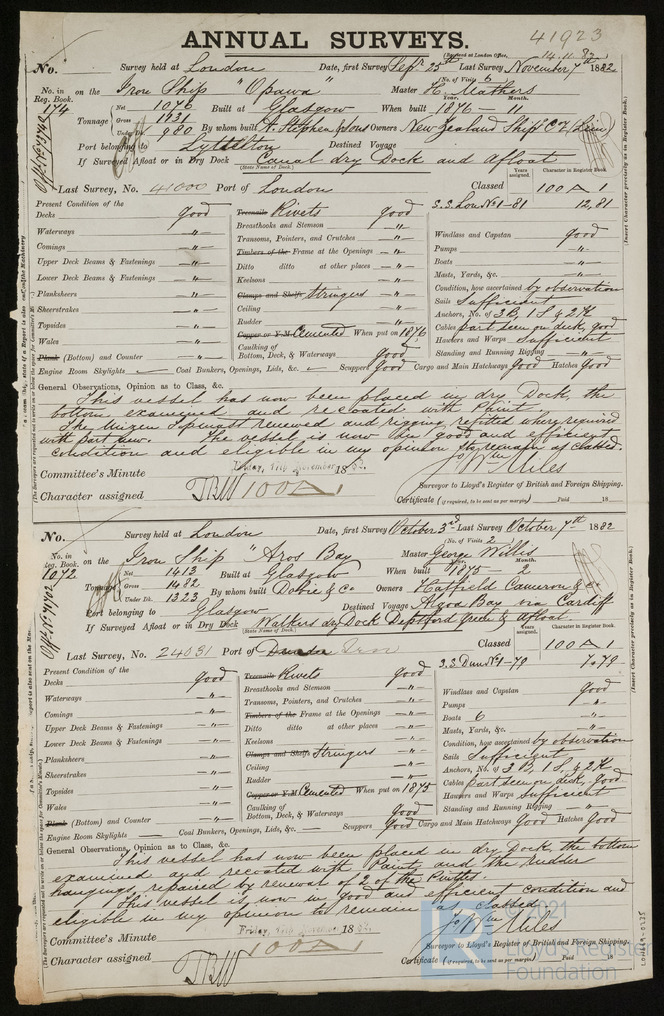 41923
ANNUAL SURVEYS.
(Received at London Office, 14.11.82
No. Survey held at London Date, first Survey Sepr. 25th Last Survey November 7th 1882
(No. of Visits 6)
No. in Reg. Book. 174 on the Iron Ship "Opawa" Master H. Mathers
Tonnage Net 1076 Built at Glasgow When built 1876 - 11
Year. Month.
Gross 1131
Under Dk. 980 By whom built A. Stephen & Sons Owners New Zealand Ship Co (Lim)
Port belonging to Lyttelton Destined Voyage
If Surveyed Afloat or in Dry Dock Canal dry Dock and Afloat
(State Name of Dock.)
Years assigned. Character in Register Book.
Last Survey, No. 41000 Port of London Classed 100 A 1
S.S. Lon No 1-81 12,81
Present Condition of the
Decks good Treenails Rivets good
Waterways -"- Breasthooks and Stemson -"- Windlass and Capstan good
Comings -"- Transoms, Pointers, and Crutches -"- Pumps -"-
Upper Deck Beams & Fastenings -"- Timbers of the Frame at the Openings -"- Boats -"-
Lower Deck Beams & Fastenings -"- Ditto ditto at other places -"- Masts, Yards, &c. -"-
Planksheers -"- Keelsons -"- Condition, how ascertained by observation
Sheerstrakes -"- Clamps and Shelfs Stringers -"- Sails Sufficient
Topsides -"- Ceiling -"- Anchors, No. of 3 B, 1 S & 2 K
Wales -"- Rudder -"- Cables part seen on deck, good
Plank (Bottom) and Counter -"- Copper or Y.M. Cemented When put on 1876 Hawsers and Warps Sufficient
Caulking of Bottom, Deck, & Waterways good Standing and Running Rigging -"-
Engine Room Skylights Coal Bunkers, Openings, Lids, &c. Scuppers good Cargo and Main Hatchways Good Hatches Good
General Observations, Opinion as to Class, &c.
This vessel has now been placed in dry Dock, the
bottom examined and recoated with Paint.
The Mizen Topmast renewed and rigging refitted where required
with part new. The vessel is now in good and efficient
condition and eligible in my opinion to remain as classed.
Jo Wm Miles
Committee's Minute Friday, 17th November 1882.
Surveyor to Lloyd's Register of British and Foreign Shipping.
Character assigned 100 A 1
Certificate (if required, to be sent as per margin) Paid 18
No. Survey held at London Date, first Survey October 3rd Last Survey October 7th 1882
(No. of Visits 2)
No. in Reg. Book. 1072 on the Iron Ship "Aros Bay" Master George Willis
Tonnage Net 1413 Built at Glasgow When built 1875 - 2
Year. Month.
Gross 1482
Under Dk. 1323 By whom built Dobie & Co Owners Hatfield Cameron & Co
Port belonging to Glasgow Destined Voyage Algoa Bay via Cardiff
If Surveyed Afloat or in Dry Dock Walkers dry Dock Deptford Green & Afloat
(State Name of Dock.)
Years assigned. Character in Register Book.
Last Survey, No. 24031 Port of Classed 100 A 1
S.S. Dun No 1-79 7.79
Present Condition of the
Decks good Treenails Rivets good
Waterways -"- Breasthooks and Stemson -"- Windlass and Capstan good
Comings -"- Transoms, Pointers, and Crutches -"- Pumps -"-
Upper Deck Beams & Fastenings -"- Timbers of the Frame at the Openings -"- Boats 6 -"-
Lower Deck Beams & Fastenings -"- Ditto ditto at other places -"- Masts, Yards, &c. -"-
Planksheers -"- Keelsons -"- Condition, how ascertained by observation
Sheerstrakes -"- Clamps and Shelfs Stringers -"- Sails Sufficient
Topsides -"- Ceiling -"- Anchors, No. of 3 B, 1 S, & 2 K
Wales -"- Rudder -"- Cables part seen on deck, Good
Plank (Bottom) and Counter -"- Copper or Y.M. Cemented When put on 1875 Hawsers and Warps Sufficient
Caulking of Bottom, Deck, & Waterways Good Standing and Running Rigging -"-
Engine Room Skylights Coal Bunkers, Openings, Lids, &c. Scuppers Good Cargo and Main Hatchways Good Hatches Good
General Observations, Opinion as to Class, &c.
This vessel has now been placed in dry Dock, the bottom
examined and recoated with Paint, and the rudder
hangings, repaired by renewal of 2 of the Pintles.
This vessel is now in good and efficient condition and
eligible in my opinion to remain as classed.
Jo Wm Miles
Committee's Minute Friday, 17th November 1882.
Surveyor to Lloyd's Register of British and Foreign Shipping.
Character assigned 100 A 1
Certificate (if required, to be sent as per margin) Paid 18
© 2021
Lloyd's Register
Foundation